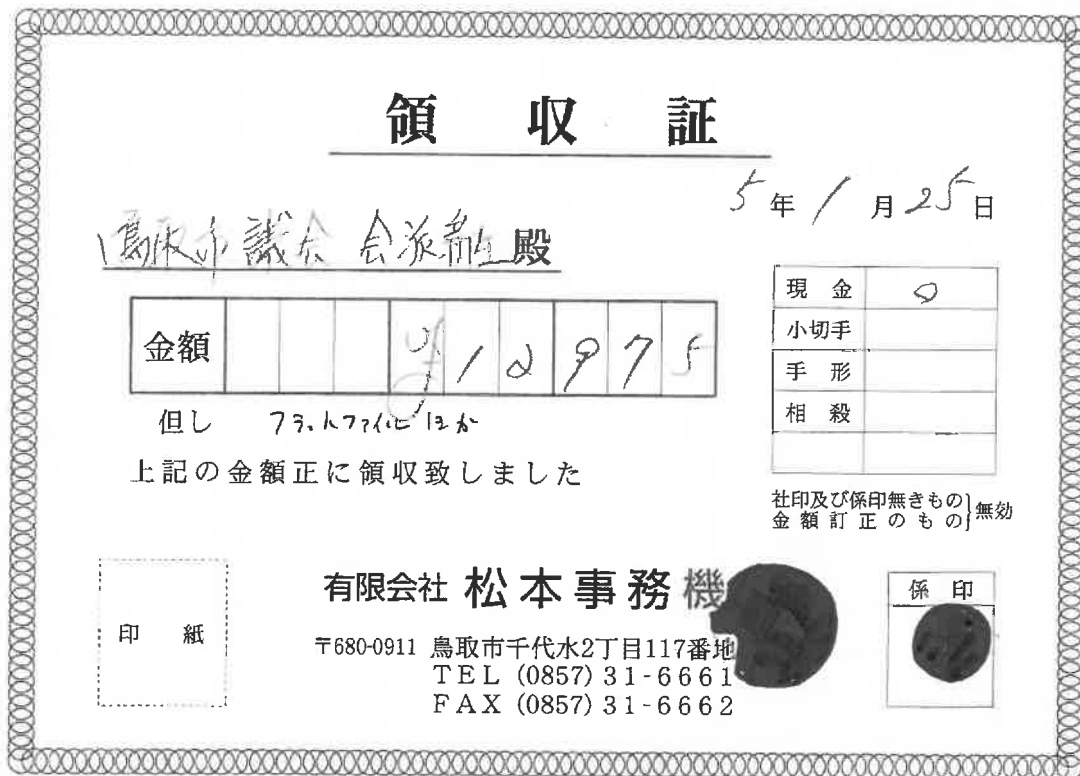 領収証
5年1月25日
鳥取市議会 会派新生 殿
金額 ¥12975
但し フラットファイルほか
上記の金額正に領収致しました
現金 ○
小切手
手形
相殺
社印及び係印無きもの
金額訂正のもの}無効
印紙
有限会社 松本事務機
〒680-0911 鳥取市千代水2丁目117番地
TEL (0857) 31-6661
FAX (0857) 31-6662
係印